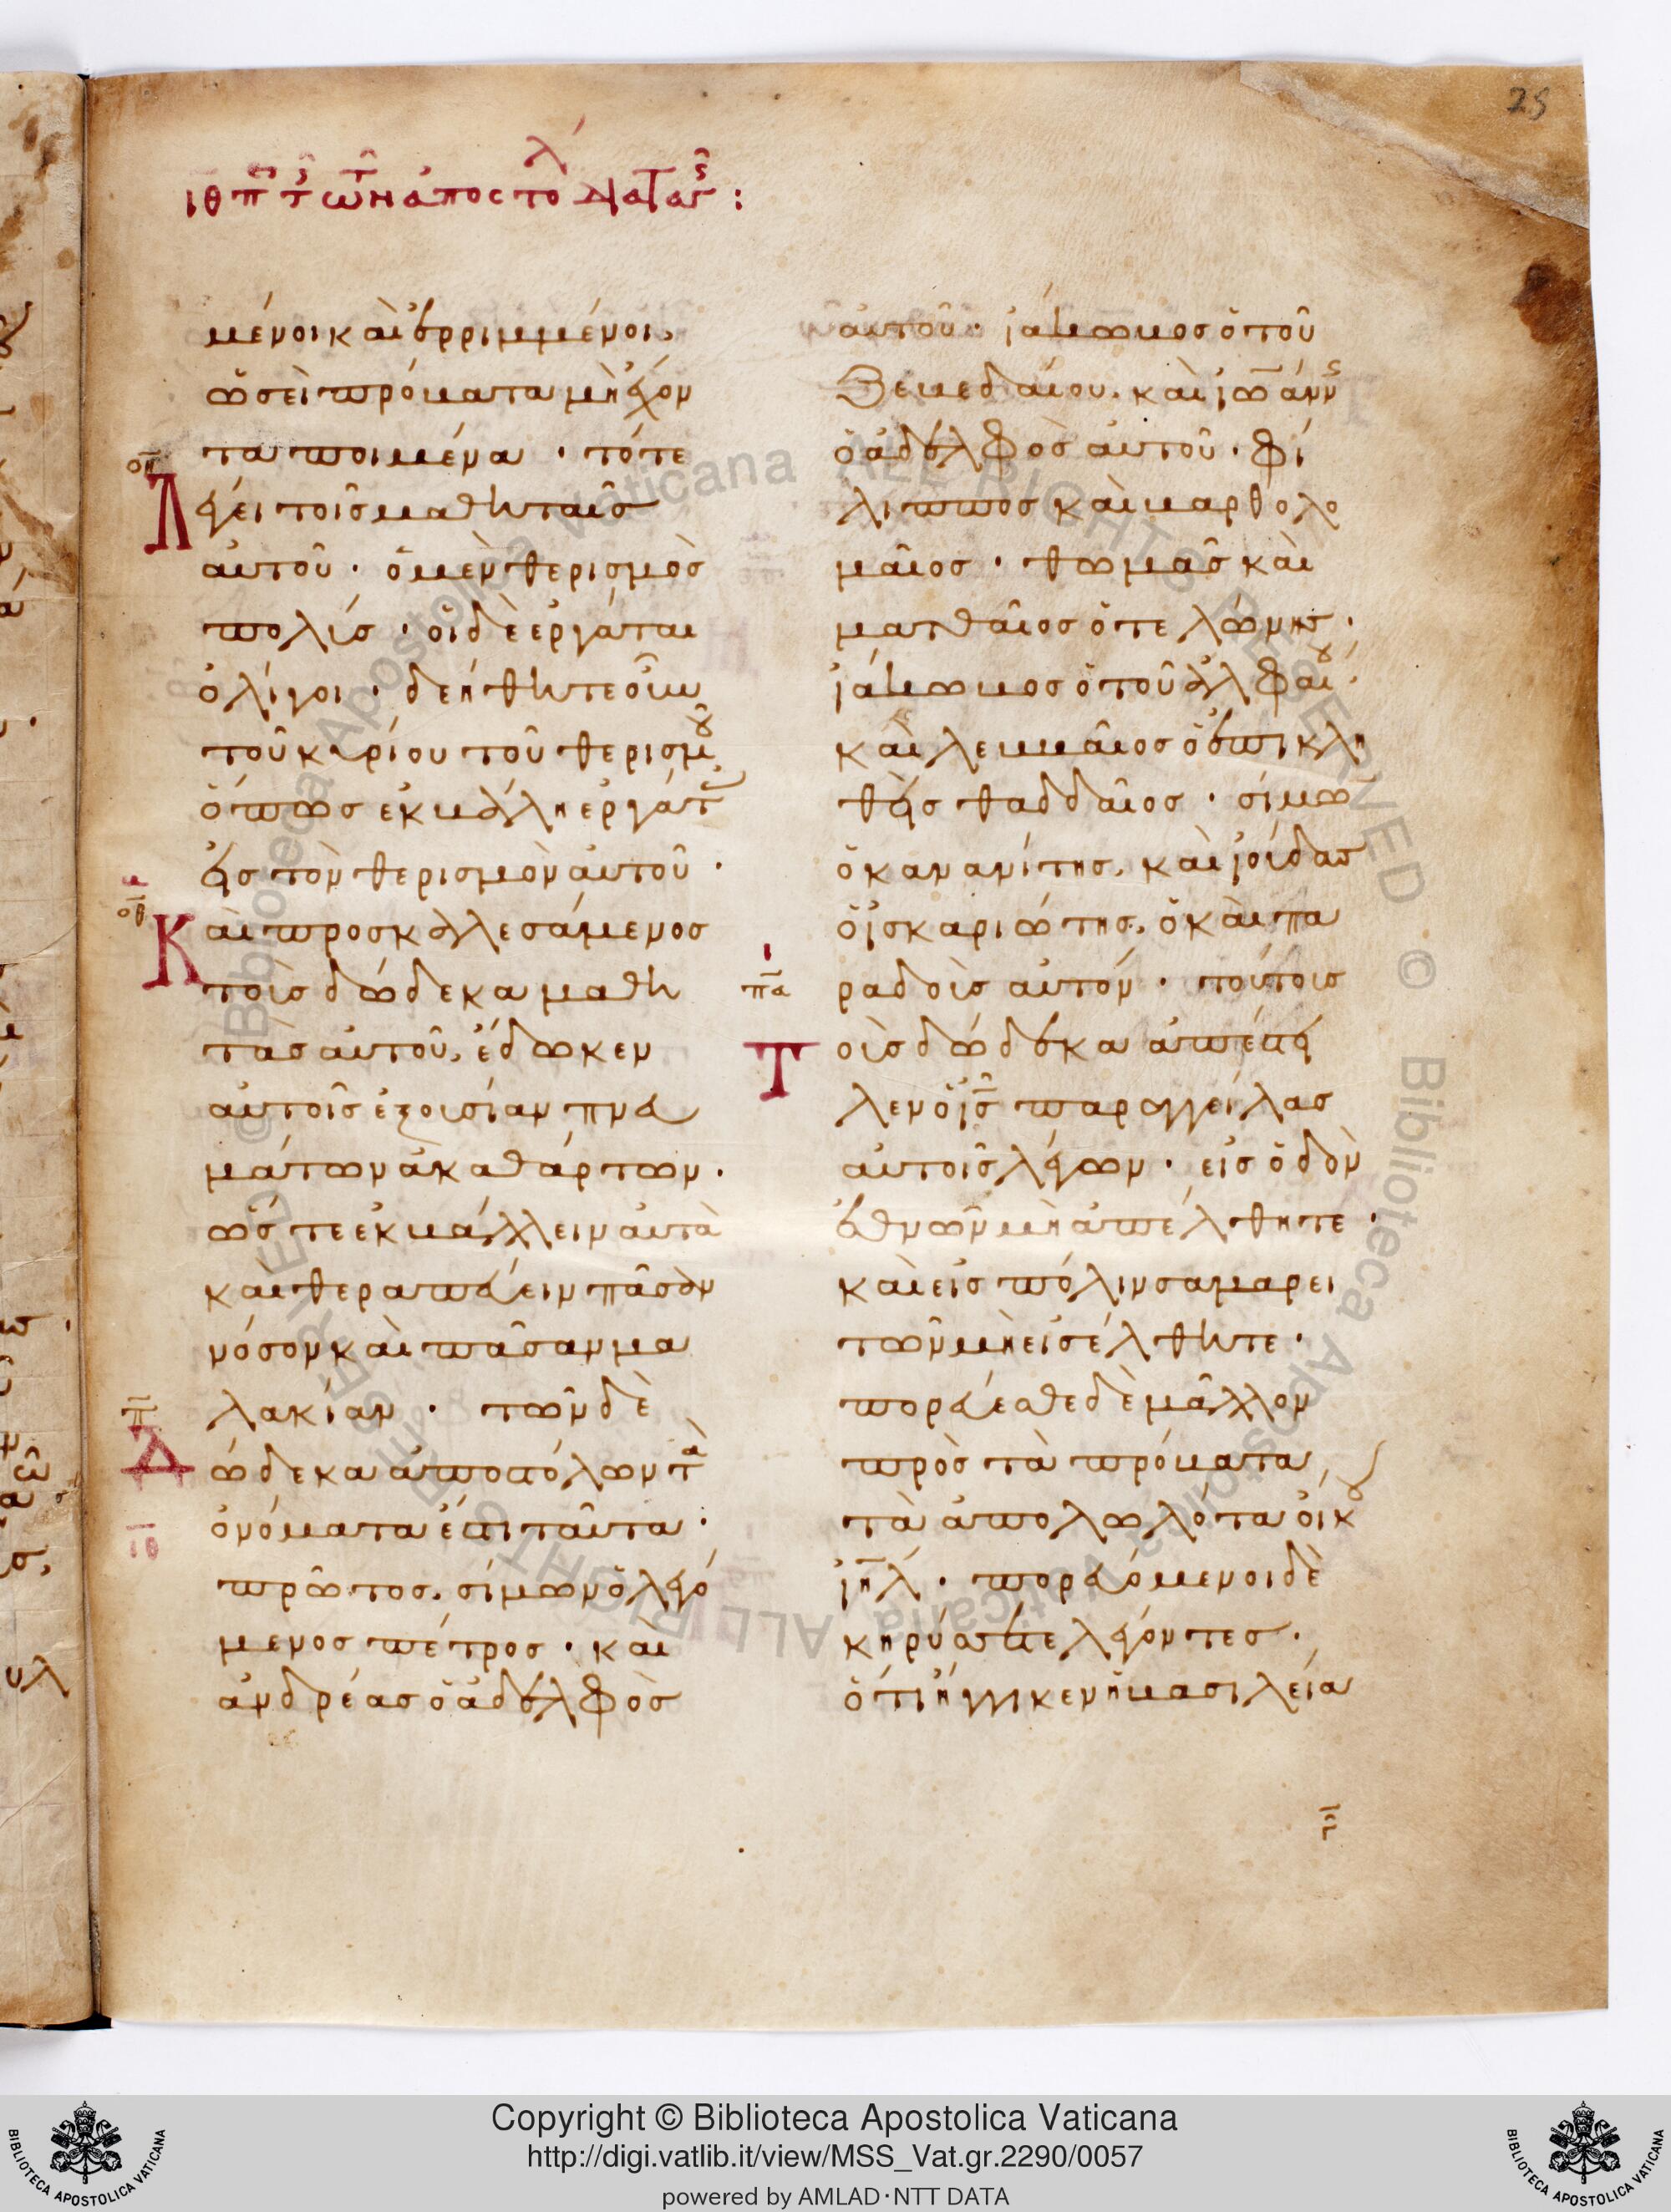 25
ιθ π τ τῶν ἀποστόλ διαταγ :
μένοι καὶ ἐρριμμένοι,
ὡσεὶ πρόβατα μὴ ἔχον
τα ποιμένα · τότε
Λέγει τοῖς μαθηταῖς
αὐτοῦ · ὁ μὲν θερισμὸς
πολύς · οἱ δὲ ἐργάται
ὀλίγοι · δεήθητε οὖν
τοῦ κυρίου τοῦ θερισμοῦ
ὅπως ἐκβάλῃ ἐργάτ
εἰς τὸν θερισμὸν αὐτοῦ ·
Καὶ προσκαλεσάμενος
τοὺς δώδεκα μαθη
τὰς αὐτοῦ, ἔδωκεν
αὐτοῖς ἐξουσίαν πνευ
μάτων ἀκαθάρτων ·
ὥστε ἐκβάλλειν αὐτὰ
καὶ θεραπεύειν πᾶσαν
νόσον καὶ πᾶσαν μα
λακίαν · τῶν δὲ
Δώδεκα ἀποστόλων τὰ
ὀνόματα ἐστι ταῦτα ·
πρῶτος, σίμων ὁ λεγό
μενος πέτρος · καὶ
ἀνδρέας ὁ ἀδελφὸς
αὐτοῦ · ἰάκωβος ὁ τοῦ
ζεβεδαίου, καὶ ἰωάνν
ὁ ἀδελφὸς αὐτοῦ · φί
λιππος καὶ βαρθολο
μαῖος · θωμᾶς καὶ
ματθαῖος ὁ τελώνης ·
ἰάκωβος ὁ τοῦ ἀλφαίου ·
καὶ λεββαῖος ὁ ἐπικλη
θεὶς θαδδαῖος · σίμω
ὁ κανανίτης, καὶ ἰούδας
ὁ ἰσκαριώτης, ὁ καὶ πα
ραδοὺς αὐτόν · τούτους
Τοὺς δώδεκα ἀπέστει
λεν ὁ ἰς παραγγείλας
αὐτοῖς λέγων · εἰς ὁδὸν
ἐθνῶν μὴ ἀπέλθητε ·
καὶ εἰς πόλιν σαμαρει
τῶν μὴ εἰσέλθητε ·
πορεύεσθε δὲ μᾶλλον
πρὸς τὰ πρόβατα
τὰ ἀπολωλότα οἴκου
ἰηλ · πορευόμενοι δὲ
κηρύσσετε λέγοντες ·
ὅτι ἤγγικεν ἡ βασιλεία
Copyright © Biblioteca Apostolica Vaticana
http://digi.vatlib.it/view/MSS_Vat.gr.2290/0057
powered by AMLAD·NTT DATA